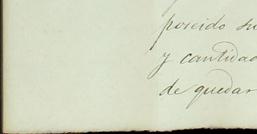 poseido su
y cantidad
de quedar